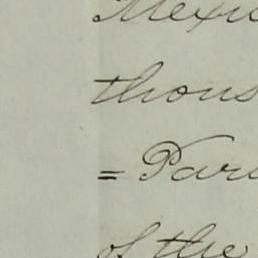 Mexic
thous
= Par
of the